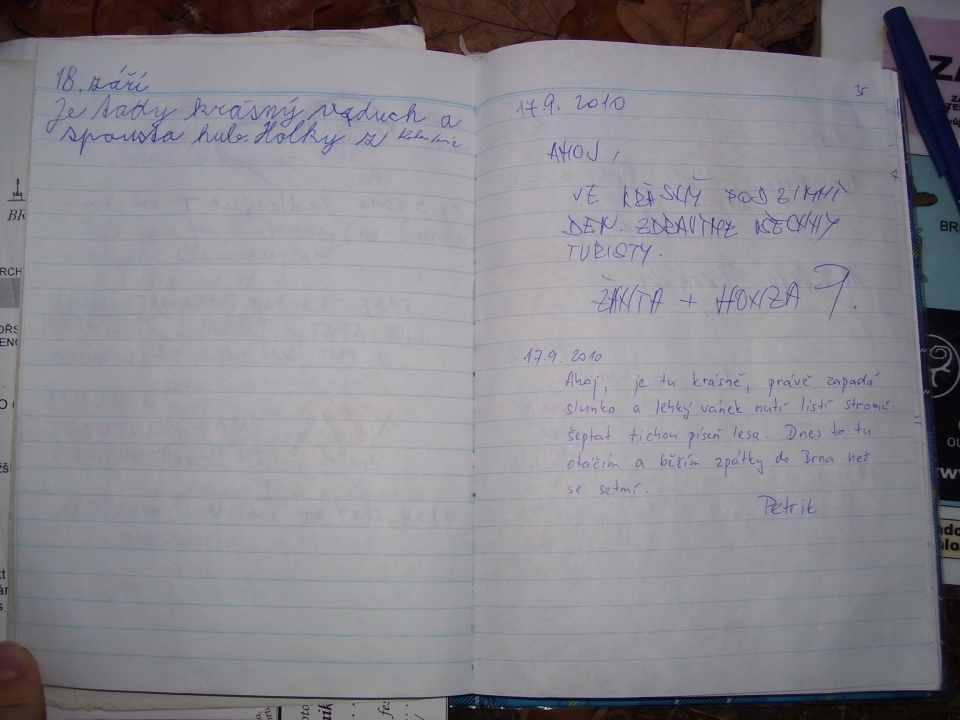 18. září
Je tady krásný vzduch a
spousta hub. Holky z
17.9. 2010
AHOJ,
VE KRÁSNÝ PODZIMNÍ
DEN. ZDRAVÍME VŠECHNY
TURISTY.
+ HONZA
17.9. 2010
Ahoj, je tu krásně, právě zapadá
slunko a lehký vánek nutí listí stromů
šeptat tichou píseň lesa. Dnes to tu
otáčím a běžím zpátky do Brna než
se setmí.
Petrik